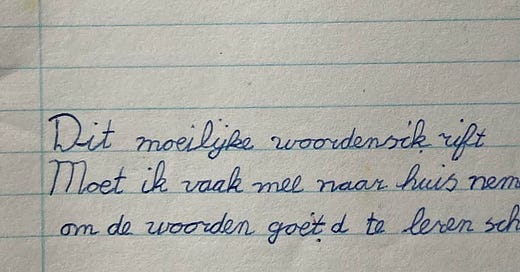 Dit moeilijke woordensik rift
Moet ik vaak mee naar huis nem
om de woorden goetd te leren sch